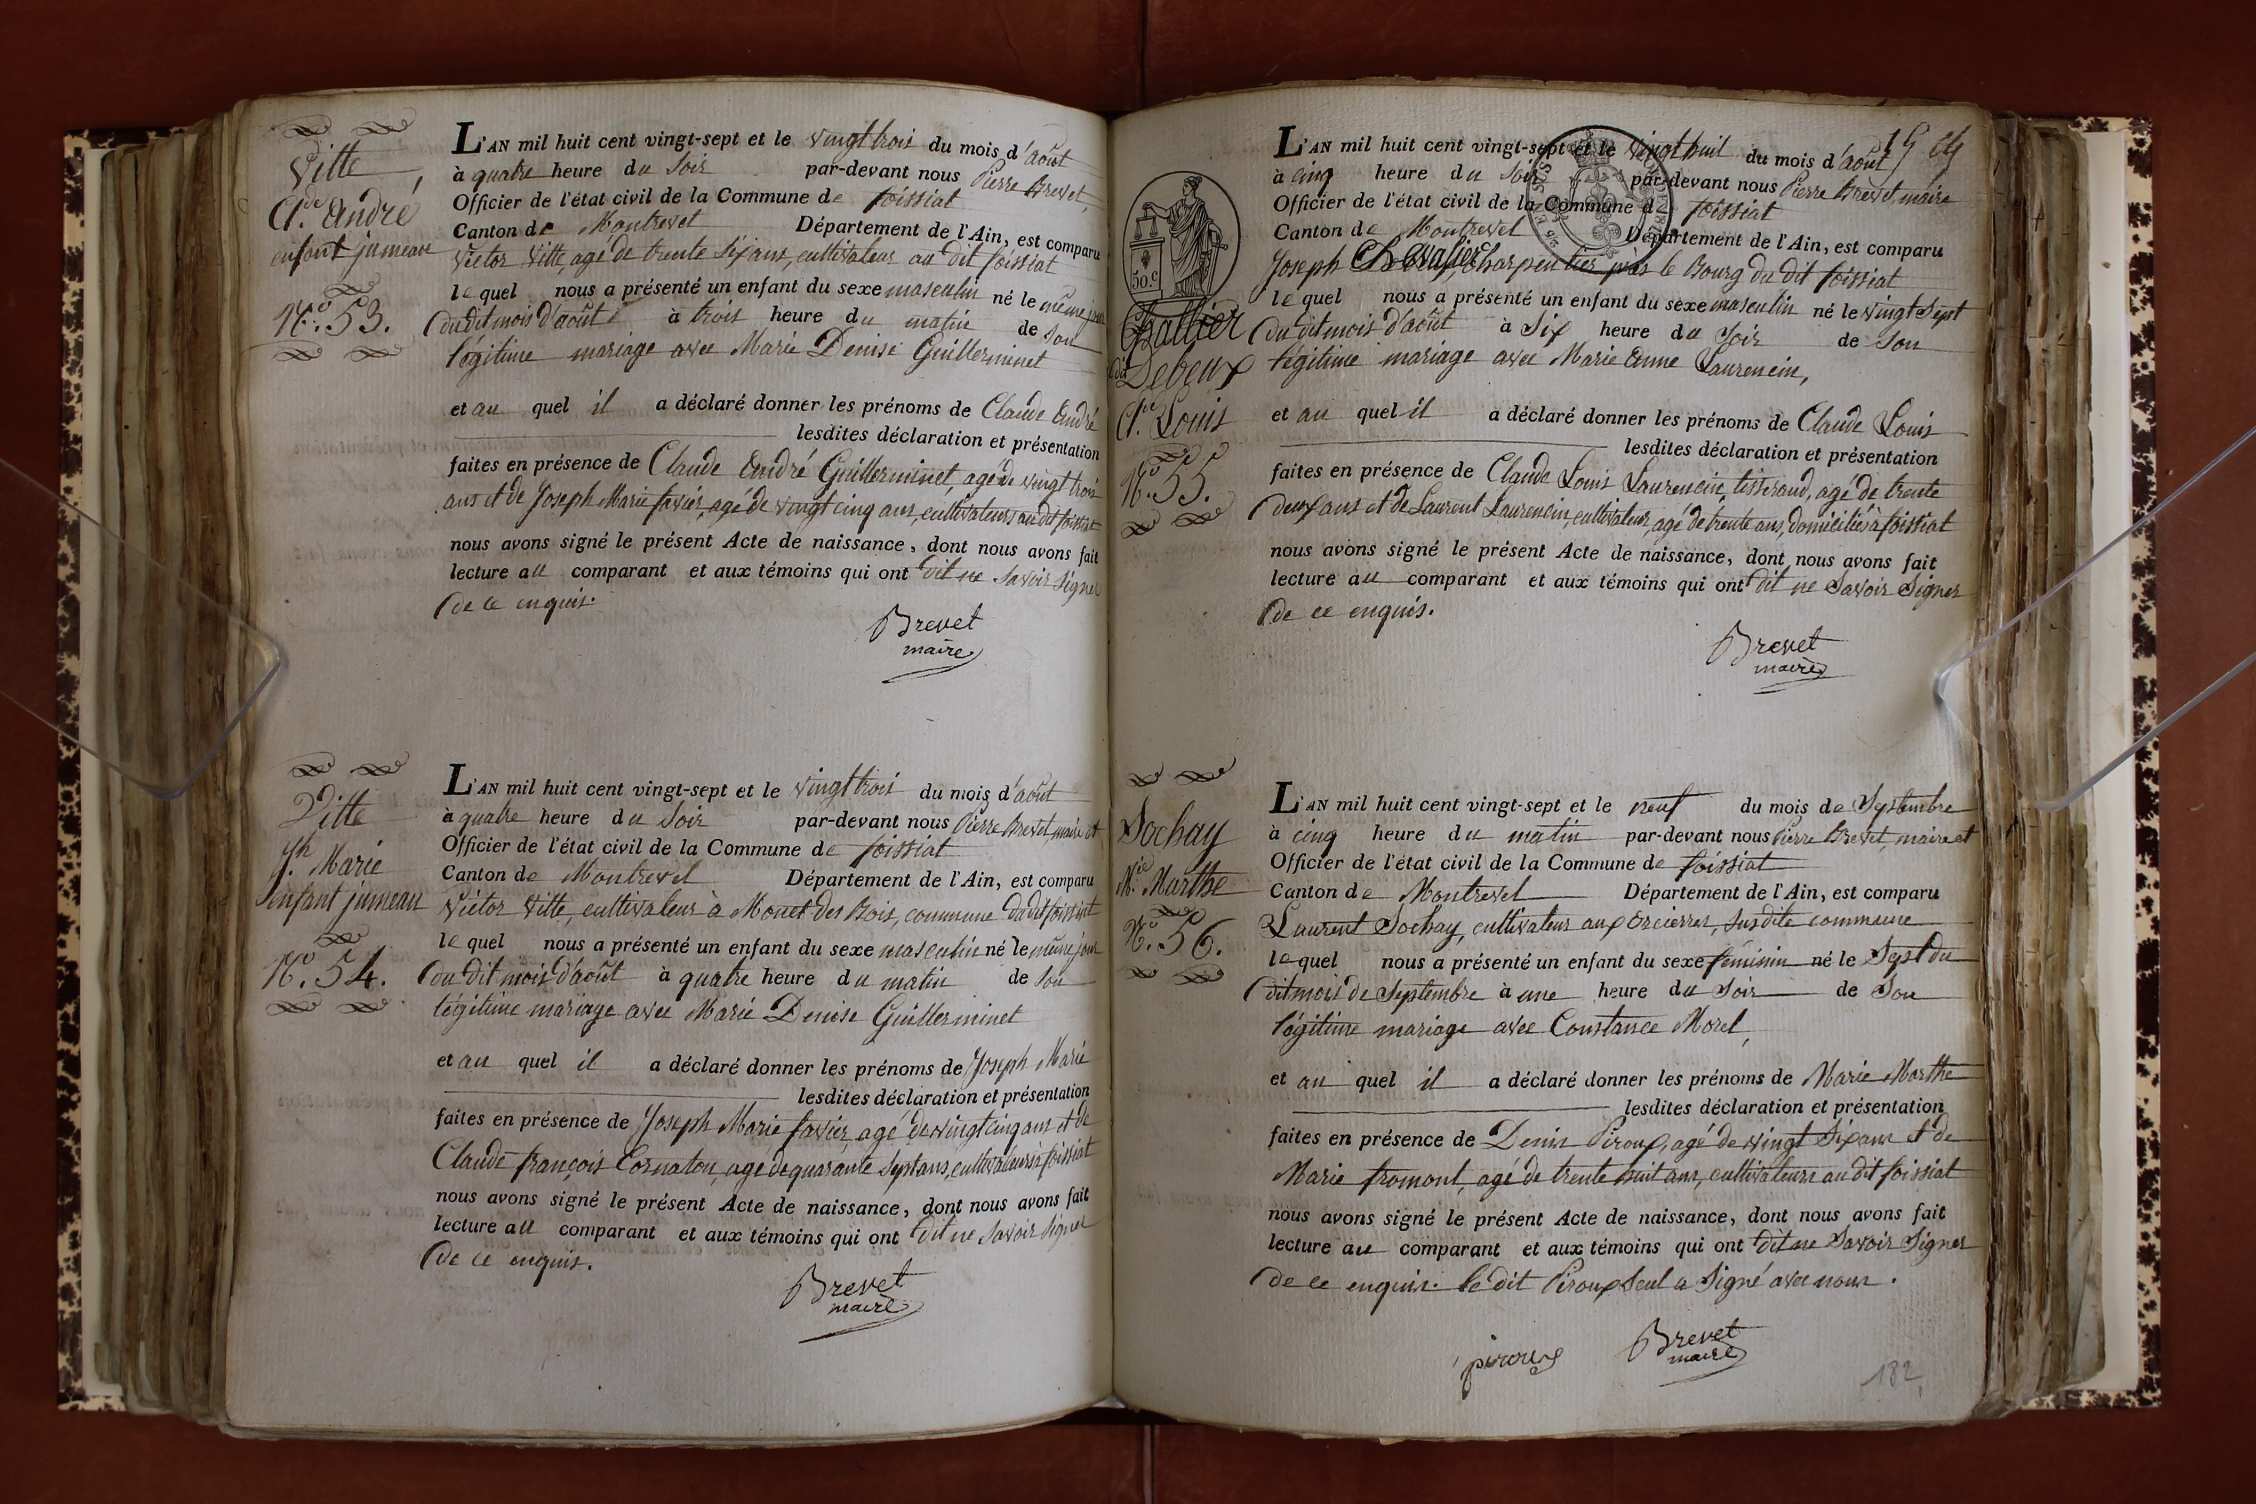 Vitte
Cl.de André
enfant jumeau
N.o 53.
L'AN mil huit cent vingt-sept et le vingt trois du mois d'août
à quatre heure du Soir par-devant nous Pierre Brevet,
Officier de l'état civil de la Commune de foissiat
Canton de Montrevel Département de l'Ain, est comparu
Victor Vitte, agé de trente Six ans, cultivateur au dit foissiat
lequel nous a présenté un enfant du sexe masculin né le même jour
du dit mois d'août à trois heure du matin de Son
légitime mariage avec Marie Denise Guillerminet
et au quel il a déclaré donner les prénoms de Claude André
lesdites déclaration et présentation
faites en présence de Claude André Guillerminet, agé de vingt trois
ans et de Joseph Marie favier, agé de vingt cinq ans, cultivateurs au dit foissiat
nous avons signé le présent Acte de naissance, dont nous avons fait
lecture au comparant et aux témoins qui ont dit ne Savoir Signer
de ce enquis.
Brevet
maire
Vitte
J.h Marie
enfant jumeau
N.o 54.
L'AN mil huit cent vingt-sept et le vingt trois du mois d'août
à quatre heure du Soir par-devant nous Pierre Brevet, maire et
Officier de l'état civil de la Commune de foissiat
Canton de Montrevel Département de l'Ain, est comparu
Victor Vitte, cultivateur à Monet des Bois, commune du dit foissiat
lequel nous a présenté un enfant du sexe masculin né le même jour
du dit mois d'août à quatre heure du matin de Son
légitime mariage avec Marie Denise Guillerminet
et au quel il a déclaré donner les prénoms de Joseph Marie
lesdites déclaration et présentation
faites en présence de Joseph Marie favier, agé de vingt cinq ans et de
Claude françois Cornaton, agé de quarante Sept ans, cultivateurs à foissiat
nous avons signé le présent Acte de naissance, dont nous avons fait
lecture au comparant et aux témoins qui ont dit ne Savoir Signer
de ce enquis.
Brevet
maire
15
50.c
Challier
dit
Debeux
Cl.de Louis
N.o 55.
L'AN mil huit cent vingt-sept et le vingt huit du mois d'août
à cinq heure du Soir par-devant nous Pierre Brevet, maire
Officier de l'état civil de la Commune de foissiat
Canton de Montrevel Département de l'Ain, est comparu
Joseph charpentier près le Bourg du dit foissiat
lequel nous a présenté un enfant du sexe masculin né le vingt Sept
du dit mois d'août à Six heure du Soir de Son
légitime mariage avec Marie Anne Laurencin,
et au quel il a déclaré donner les prénoms de Claude Louis
lesdites déclaration et présentation
faites en présence de Claude Louis Laurencin, tisserand, agé de trente
deux ans et de Laurent Laurencin, cultivateur, agé de trente ans, domiciliés à foissiat
nous avons signé le présent Acte de naissance, dont nous avons fait
lecture au comparant et aux témoins qui ont dit ne Savoir Signer
de ce enquis.
Brevet
maire
Sochay
M.ie Marthe
N.o 56.
L'AN mil huit cent vingt-sept et le neuf du mois de Septembre
à cinq heure du matin par-devant nous Pierre Brevet, maire et
Officier de l'état civil de la Commune de foissiat
Canton de Montrevel Département de l'Ain, est comparu
Laurent Sochay, cultivateur aux Orcierres, Susdite commune
lequel nous a présenté un enfant du sexe féminin né le Sept du
dit mois de Septembre à une heure du Soir de Son
légitime mariage avec Constance Morel,
et au quel il a déclaré donner les prénoms de Marie Marthe
lesdites déclaration et présentation
faites en présence de Denis Piroux, agé de vingt Six ans et de
Marie fromont, agé de trente huit ans, cultivateurs au dit foissiat
nous avons signé le présent Acte de naissance, dont nous avons fait
lecture au comparant et aux témoins qui ont dit ne Savoir Signer
de ce enquis. le dit Piroux Seul a Signé avec nous.
piroux
Brevet
maire
182